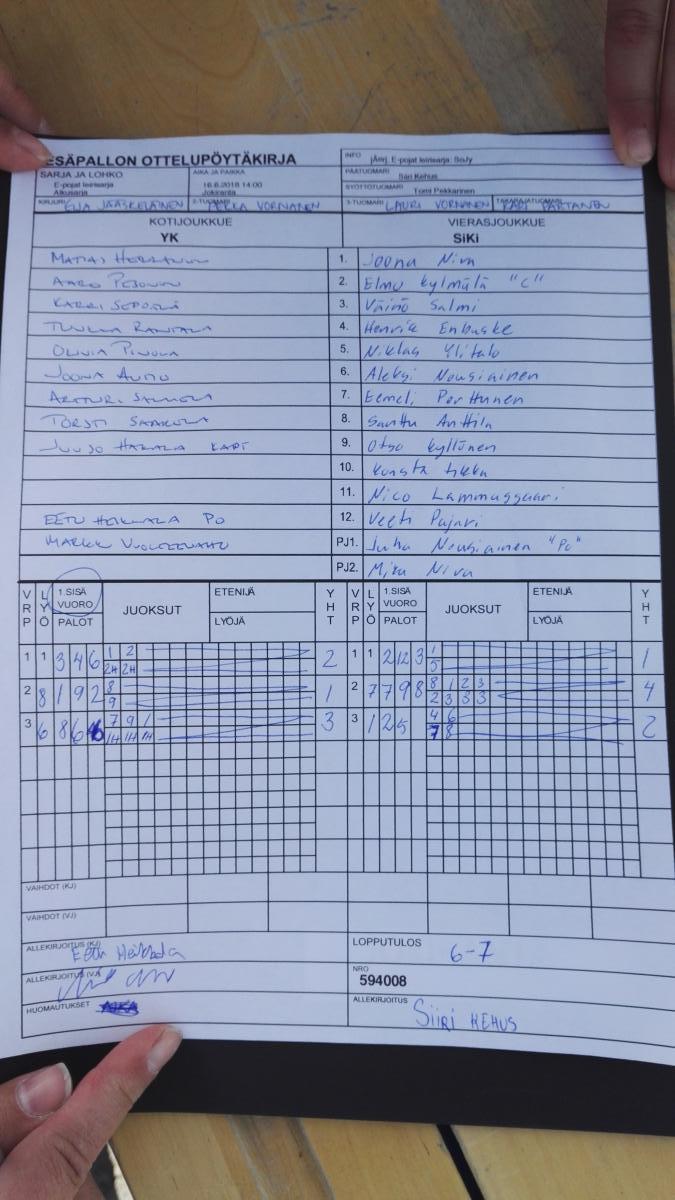 ESÄPALLON OTTELUPÖYTÄKIRJA
INFO jAnj. E-pojat leirisarja: SoJy
SARJA JA LOHKO AIKA JA PAIKKA PÄÄTUOMARI Siiri Kehus
E-pojat leirisarja 16.6.2018 14:00 SYÖTTÖTUOMARI Tomi Pekkarinen
Alkusarja Jokiranta
KIRJURI EIJA JÄÄSKELÄINEN 2-TUOMARI PEKKA VORNANEN 3-TUOMARI LAURI VORNANEN TAKARAJATUOMARI KARI PARTANEN
KOTIJOUKKUE VIERASJOUKKUE
YK SiKi
1. Joona Niva
2. Elmo Kylmälä "C"
KARRI SEPPÄLÄ 3. Väinö Salmi
TUUKKA RANTALA 4. Henrik Enbuske
OLIVIA 5. Niklas Ylitalo
JOONA 6. Aleksi Nousiainen
ARTTURI 7. Eemeli Porttunen
TORSTI 8. Santtu Anttila
JUUSO HAKALA KAPT 9. Otso Kyllönen
10. Konsta
11. Nico
EETU HEIKKALA PO 12. Veeti Pajari
MARKK PJ1. Juha Nousiainen "Po"
PJ2. Mika Niva
VRP LYÖ 1.SISÄ VUORO PALOT JUOKSUT ETENIJÄ LYÖJÄ YHT VRP LYÖ 1.SISÄ VUORO PALOT JUOKSUT ETENIJÄ LYÖJÄ YHT
1 1 3 4 6 1 2 2 1 1 2 12 3 1 1
2H 2H 5
2 8 1 9 2 8 1 2 7 7 9 8 8 1 2 3 4
9 2 3 3 3
3 6 8 6 7 9 1 3 3 1 2 5 4 6 2
1H 1H 1H 7 8
VAIHDOT (KJ)
VAIHDOT (VJ)
ALLEKIRJOITUS (KJ) Eetu Heikkala LOPPUTULOS 6-7
ALLEKIRJOITUS (VJ) NRO 594008
HUOMAUTUKSET ALLEKIRJOITUS Siiri KEHUS